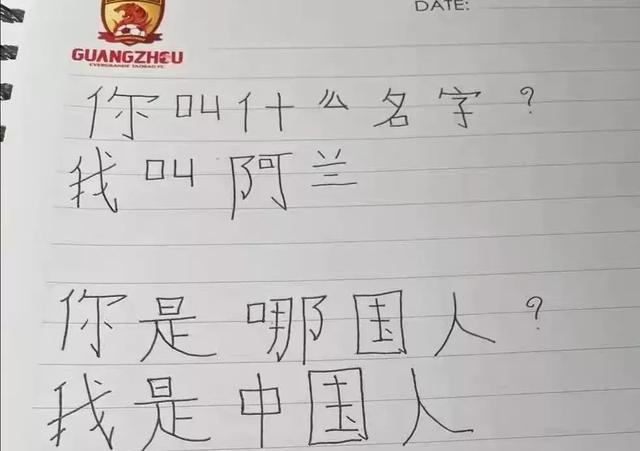 DATE:
GUANGZHOU
EVERGRANDE TAOBAO FC
你叫什么名字？
我叫阿兰
你是哪国人？
我是中国人